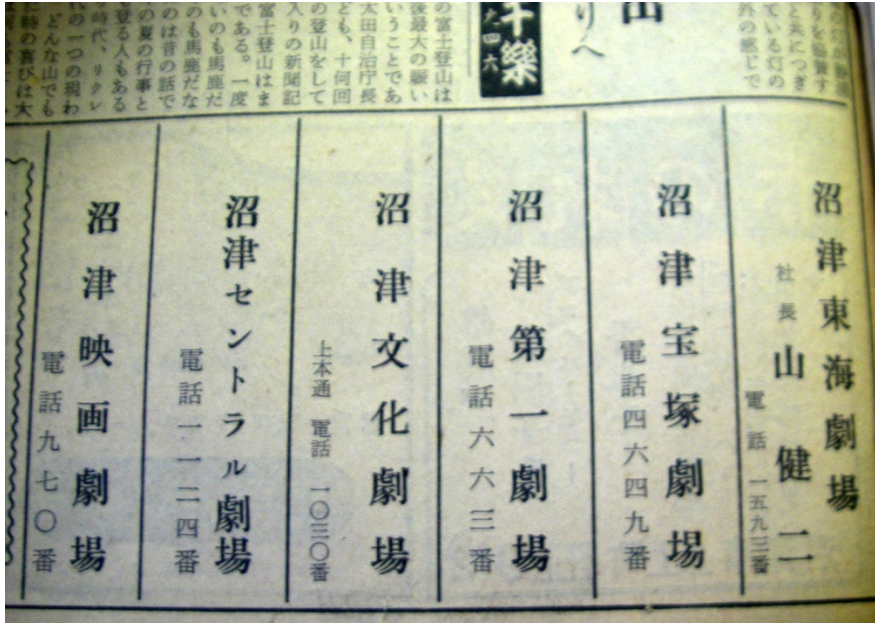 と共につぎ
ている灯の
外の感じで
山
りへ
の富士登山は
後最大の賑い
いうことであ
太田自治庁長
ども、十何回
の登山をして
入りの新聞記
富士登山はま
である。一度
いのも馬鹿だ
のも馬鹿だな
のは昔の話で
の夏の行事と
を登る人もある
時代、リクレ
代の一つの現わ
どんな山でも
た時の喜びは大
沼津東海劇場
社長 山健二
電話 一五九三番
沼津宝塚劇場
電話四六四九番
沼津第一劇場
電話六六三番
沼津文化劇場
上本通 電話 一〇三〇番
沼津セントラル劇場
電話一一二四番
沼津映画劇場
電話九七〇番